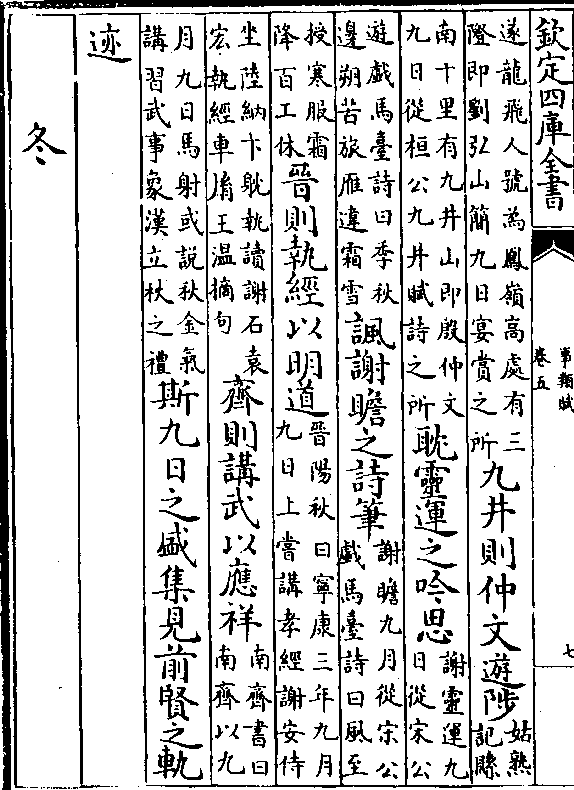 欽定四庫全書
事類賦
卷五
七
遂龍飛人號為鳳嶺高處有三
隥即劉弘山簡九日宴賞之所
九井則仲文遊陟
姑熟
記縣
南十里有九井山即殷仲文
九日從桓公九井賦詩之所
耽靈運之吟思
謝靈運九
日從宋公
遊戲馬臺詩曰季秋
邊朔苦旅雁違霜雪
諷謝瞻之詩筆
謝瞻九月從宋公
戲馬臺詩曰風至
授寒服霜
降百工休
晉則執經以明道
晉陽秋曰寧康三年九月
九日上嘗講孝經謝安侍
坐陸納卞耽執讀謝石袁
宏執經車胤王温摘句
齊則講武以應祥
南齊書曰
南齊以九
月九日馬射或説秋金氣
講習武事象漢立秋之禮
斯九日之盛集見前賢之軌
迹
冬